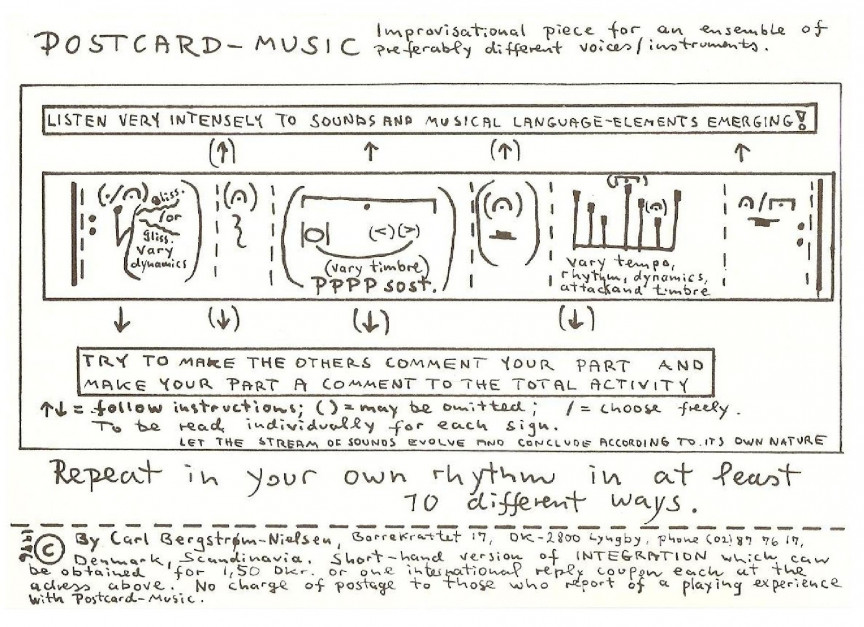 POSTCARD-MUSIC
Improvisational piece for an ensemble of
preferably different voices/instruments.
LISTEN VERY INTENSELY TO SOUNDS AND MUSICAL LANGUAGE-ELEMENTS EMERGING!
(↑) ↑ (↑) ↑
gliss.
or
gliss.
vary
dynamics
(<)(>)
(vary timbre)
PPPP sost.
vary tempo,
rhythm, dynamics,
attack and timbre
↓ (↓) (↓) (↓)
TRY TO MAKE THE OTHERS COMMENT YOUR PART AND
MAKE YOUR PART A COMMENT TO THE TOTAL ACTIVITY
↑↓ = follow instructions; () = may be omitted; / = choose freely.
To be read individually for each sign.
LET THE STREAM OF SOUNDS EVOLVE AND CONCLUDE ACCORDING TO ITS OWN NATURE
Repeat in your own rhythm in at least
10 different ways.
1976
© By Carl Bergstrøm-Nielsen, Borrekrattet 17, DK-2800 Lyngby, phone (02) 87 76 17,
Denmark, Scandinavia. Short-hand version of INTEGRATION which can
be obtained for 1,50 Dkr. or one international reply coupon each at the
adress above. No charge of postage to those who report of a playing experience
with Postcard-Music.